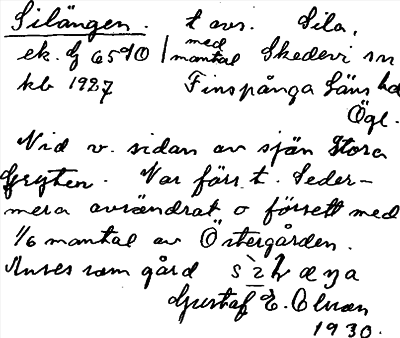 Silängen. t avs. Sila,
ek. G 6590 / med mantal Skedevi sn
kb 1927 Finspånga Läns hd
Ögl.
Vid v. sidan av sjön Stora
Gryten. Var förr t. Seder-
mera avsöndrat o försett med
1/6 mantal av Östergården.
Anses som gård
Gustaf E. Olsson
1930.